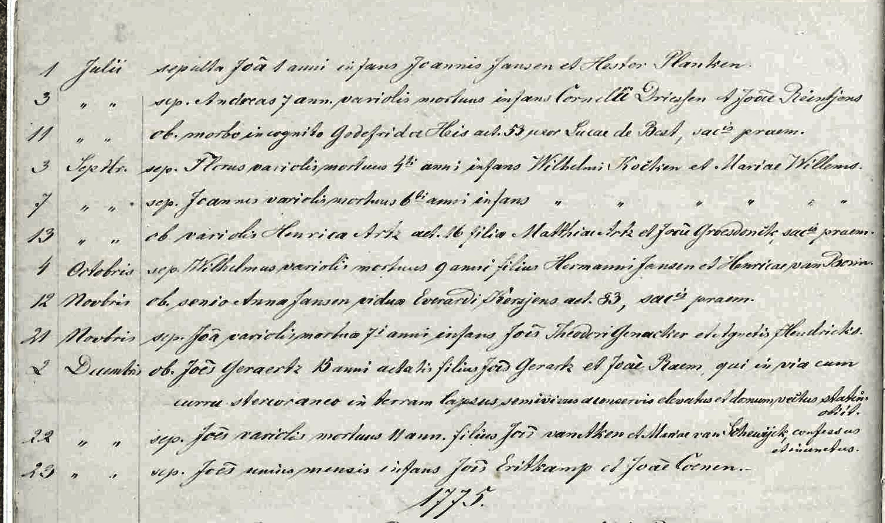 1 Julii sepulta Joã 1 anni infans Joannis Jansen et Hester Planken.
3 " " sep. Andreas 7 ann. variolis mortuus infans Cornelii Driessen et Joãe Reintjens
11 " " ob. morbo incognito Godefrida His aet. 53 uxor Lucae de Best, sacis praem.
3 Septbr. sep. Florus variolis mortuus 4ti anni infans Wilhelmi Koëken et Mariae Willems.
7 " " sep. Joannes variolis mortuus 6ti anni infans " " " " " "
13 " " ob. variolis Henrica Artz aet. 16 filia Matthiae Artz et Joãe Groesdonck, sacis praem.
4 Octobris sep. Wilhelmus variolis mortuus 9 anni filius Hermanni Jansen et Henricae van
12 Novbris ob. senio Anna Jansen vidua Everardi Kersjens aet. 83, sacis praem.
21 Novbris sep. Joã variolis mortua 7i anni infans Joẽs Theodori Genacker et Agnetis Hendricks.
2 Decembris ob. Joẽs Geraertz 15 anni aetatis filius Joẽs Gerartz et Joãe Raem, qui in via cum
curru stercoraneo in terram lapsus semivivus a conservis elevatus et domum vectus statim
obiit.
22 " " sep. Joẽs variolis mortuus 11 ann. filius Joẽs van Aken et Mariae van confessus
et inunctus.
23 " " sep. Joẽs unius mensis infans Joẽs Eritkamp et Joãe Coenen.
1775.